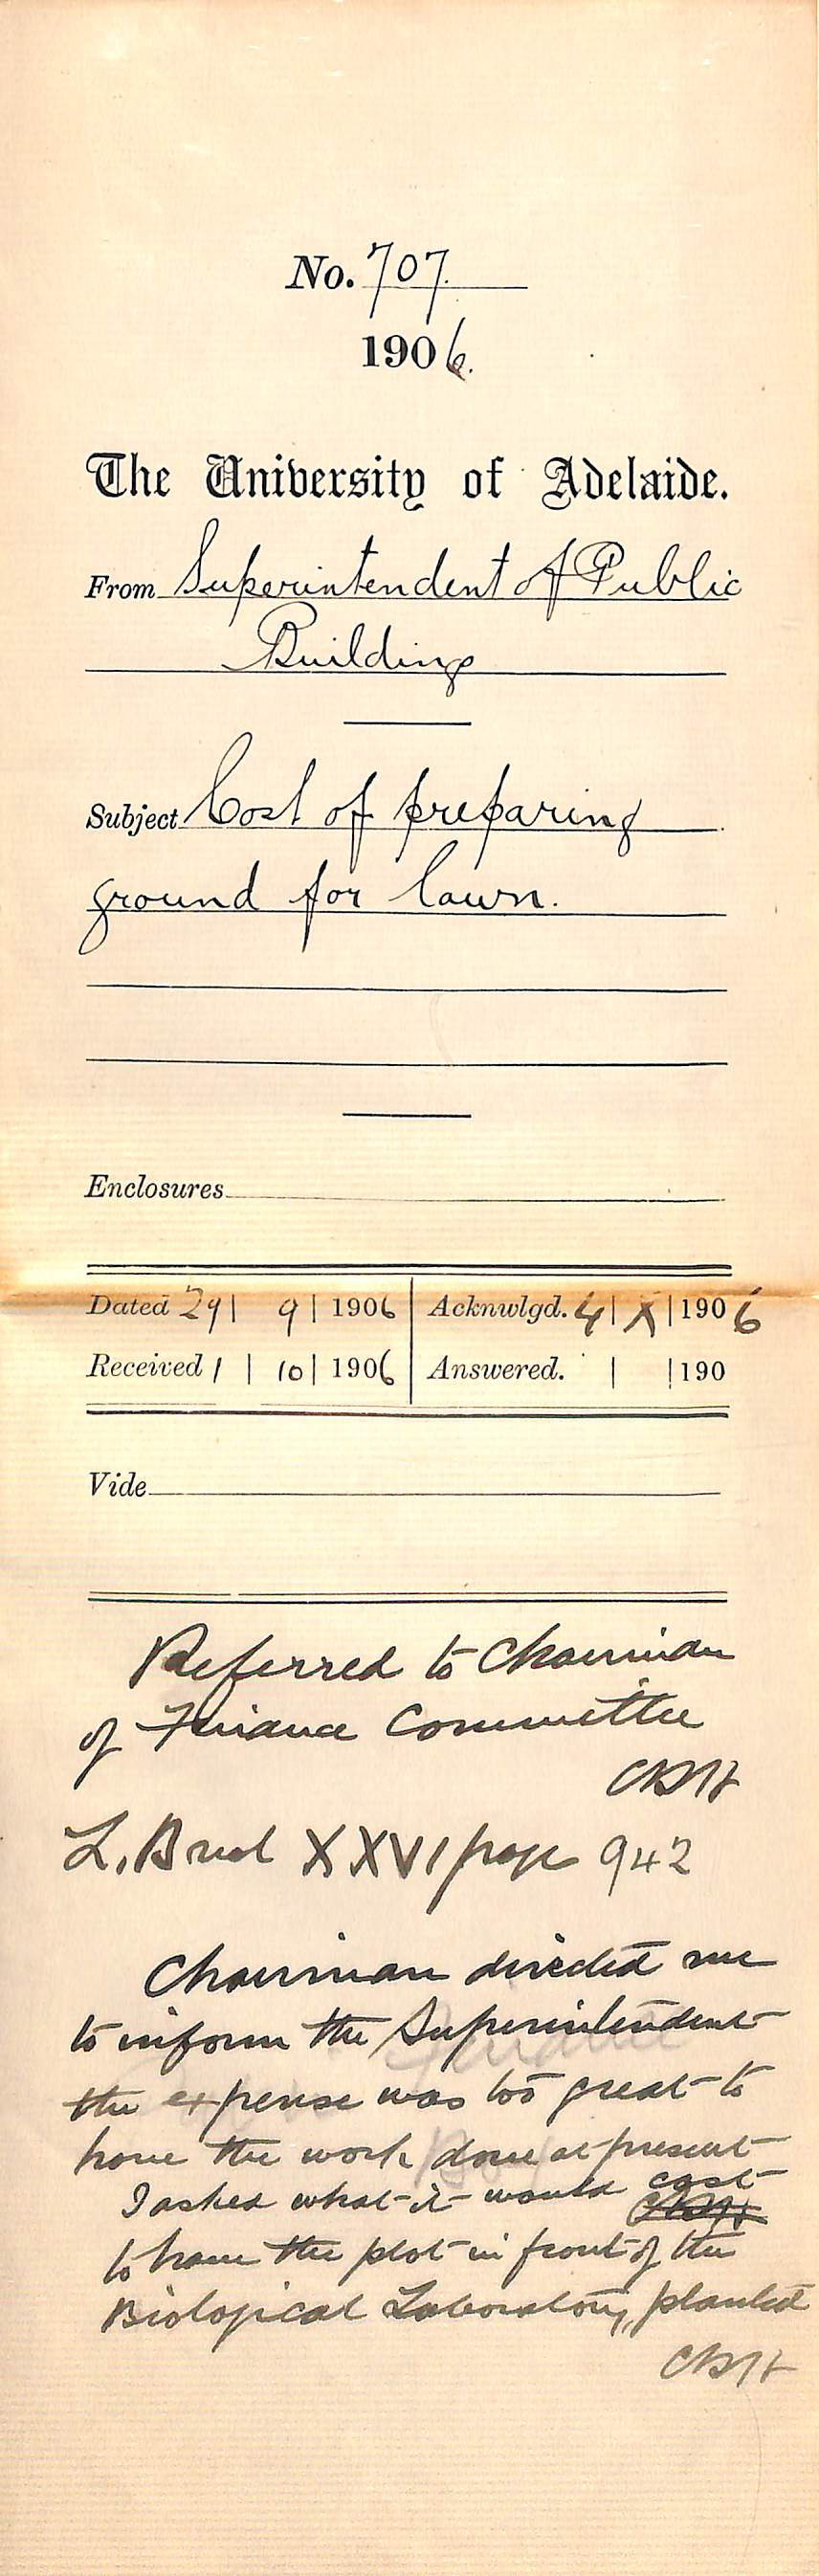 No. 707.
1906.
The University of Adelaide.
From Superintendent of Public
Buildings
Subject Cost of preparing
ground for lawn.
Enclosures
Dated 29 | 9 | 1906 Acknwlgd. 4 | X | 1906
Received 1 | 10 | 1906 Answered. | | 190
Vide
Referred to Chairman
of Finance Committee
CRH
L. Book XXVI page 942
Chairman directed me
to inform the Superintendent
the expense was too great to
have the work done at present
I asked what it would cost
to have the plot in front of the
Biological Laboratory, planted
CRH